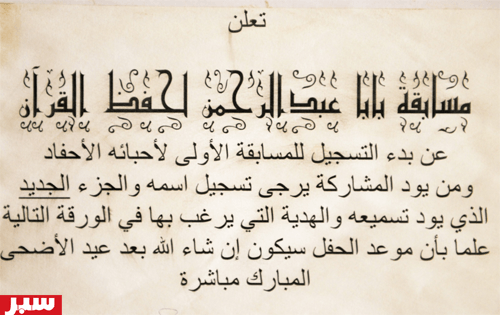 تعلن
مسابقة بابا عبدالرحمن لحفظ القرآن
عن بدء التسجيل للمسابقة الأولى لأحبائه الأحفاد
ومن يود المشاركة يرجى تسجيل اسمه والجزء الجديد
الذي يود تسميعه والهدية التي يرغب بها في الورقة التالية
علما بأن موعد الحفل سيكون إن شاء الله بعد عيد الأضحى
المبارك مباشرة
سبر